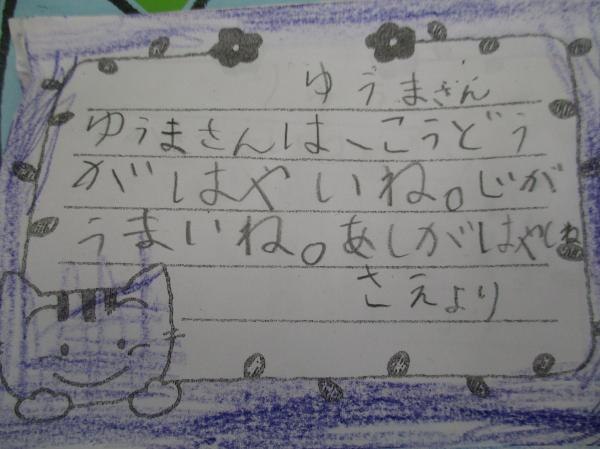 ゆうまさん
ゆうまさんは、こうどう
がはやいね。じが
うまいね。あしがはやいね
さえより